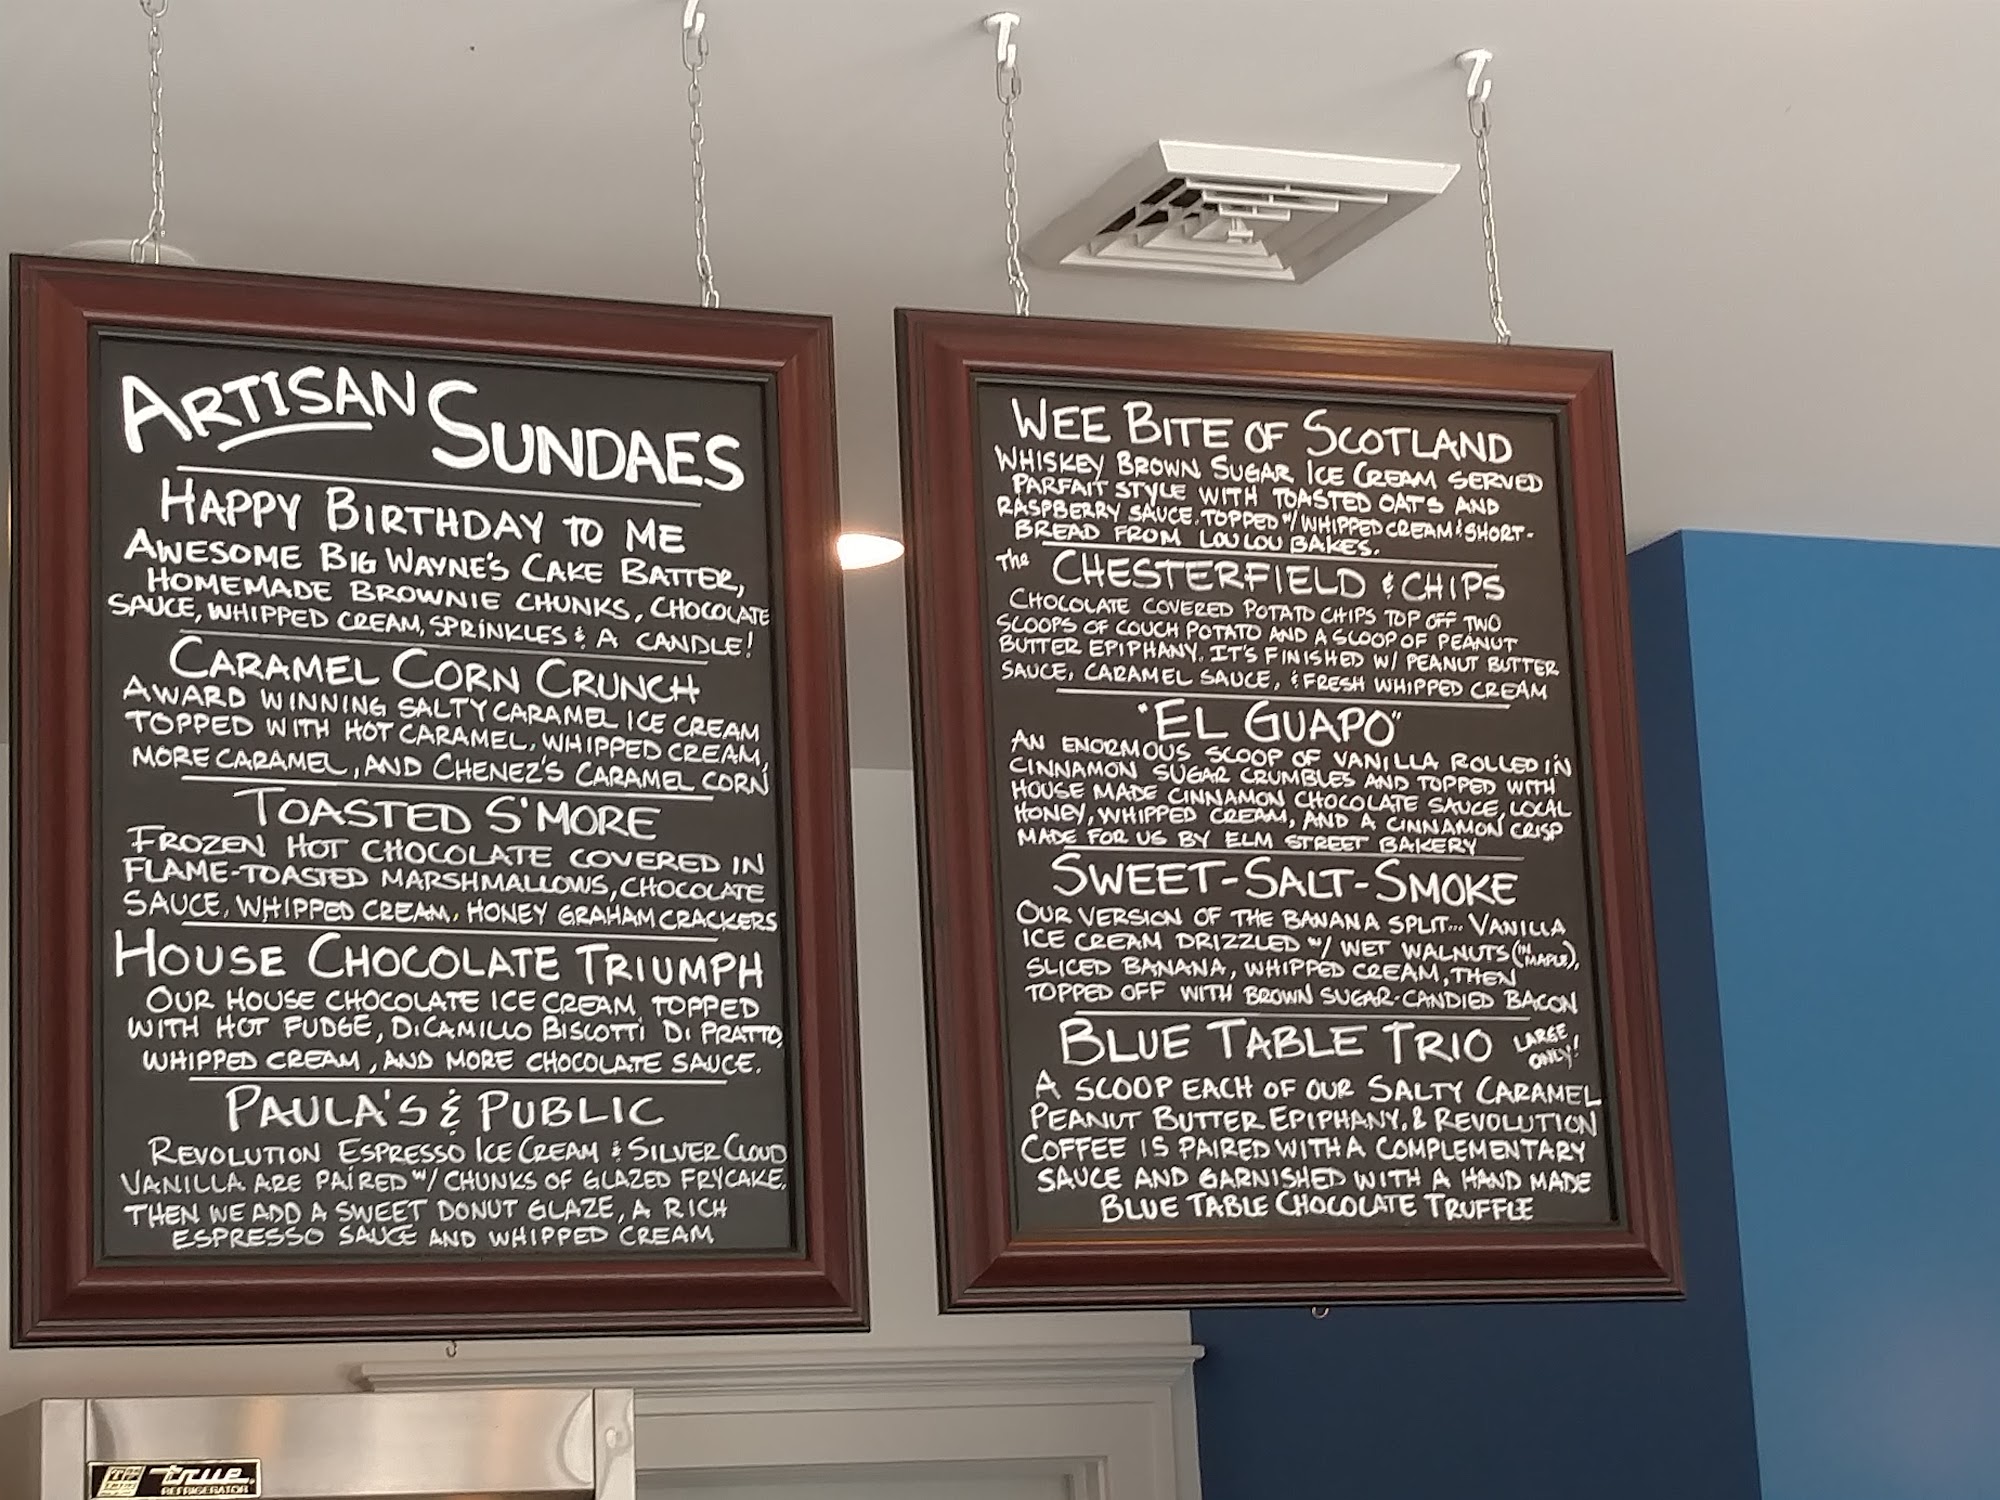 ARTISAN SUNDAES
HAPPY BIRTHDAY TO ME
AWESOME BIG WAYNE'S CAKE BATTER,
HOMEMADE BROWNIE CHUNKS, CHOCOLATE
SAUCE, WHIPPED CREAM, SPRINKLES & A CANDLE!
CARAMEL CORN CRUNCH
AWARD WINNING SALTY CARAMEL ICE CREAM
TOPPED WITH HOT CARAMEL, WHIPPED CREAM,
MORE CARAMEL, AND CHENEZ'S CARAMEL CORN
TOASTED S'MORE
FROZEN HOT CHOCOLATE COVERED IN
FLAME-TOASTED MARSHMALLOWS, CHOCOLATE
SAUCE, WHIPPED CREAM, HONEY GRAHAM CRACKERS
HOUSE CHOCOLATE TRIUMPH
OUR HOUSE CHOCOLATE ICE CREAM, TOPPED
WITH HOT FUDGE, DICAMILLO BISCOTTI DI PRATTO,
WHIPPED CREAM, AND MORE CHOCOLATE SAUCE.
PAULA'S & PUBLIC
REVOLUTION ESPRESSO ICE CREAM & SILVER CLOUD
VANILLA ARE PAIRED W/ CHUNKS OF GLAZED FRYCAKE.
THEN WE ADD A SWEET DONUT GLAZE, A RICH
ESPRESSO SAUCE AND WHIPPED CREAM
WEE BITE OF SCOTLAND
WHISKEY BROWN SUGAR ICE CREAM SERVED
PARFAIT STYLE WITH TOASTED OATS AND
RASPBERRY SAUCE. TOPPED W/ WHIPPED CREAM & SHORT-
BREAD FROM LOU LOU BAKES.
The CHESTERFIELD & CHIPS
CHOCOLATE COVERED POTATO CHIPS TOP OFF TWO
SCOOPS OF COUCH POTATO AND A SCOOP OF PEANUT
BUTTER EPIPHANY. IT'S FINISHED W/ PEANUT BUTTER
SAUCE, CARAMEL SAUCE, & FRESH WHIPPED CREAM
"EL GUAPO"
AN ENORMOUS SCOOP OF VANILLA ROLLED IN
CINNAMON SUGAR CRUMBLES AND TOPPED WITH
HOUSE MADE CINNAMON CHOCOLATE SAUCE, LOCAL
HONEY, WHIPPED CREAM, AND A CINNAMON CRISP
MADE FOR US BY ELM STREET BAKERY
SWEET-SALT-SMOKE
OUR VERSION OF THE BANANA SPLIT... VANILLA
ICE CREAM DRIZZLED W/ WET WALNUTS (IN MAPLE),
SLICED BANANA, WHIPPED CREAM, THEN
TOPPED OFF WITH BROWN SUGAR-CANDIED BACON
BLUE TABLE TRIO LARGE ONLY!
A SCOOP EACH OF OUR SALTY CARAMEL
PEANUT BUTTER EPIPHANY, & REVOLUTION
COFFEE IS PAIRED WITH A COMPLEMENTARY
SAUCE AND GARNISHED WITH A HAND MADE
BLUE TABLE CHOCOLATE TRUFFLE
true
REFRIGERATOR